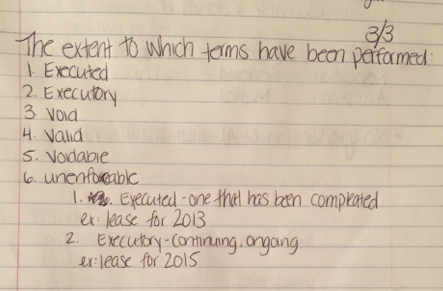 3/3
The extent to which terms have been performed:
1. Executed
2. Executory
3. Void
4. Valid
5. Voidable
6. unenforceable
1. Executed - one that has been compleated
ex: lease for 2013
2. Executory - Continuing, ongoing
ex: lease for 2015